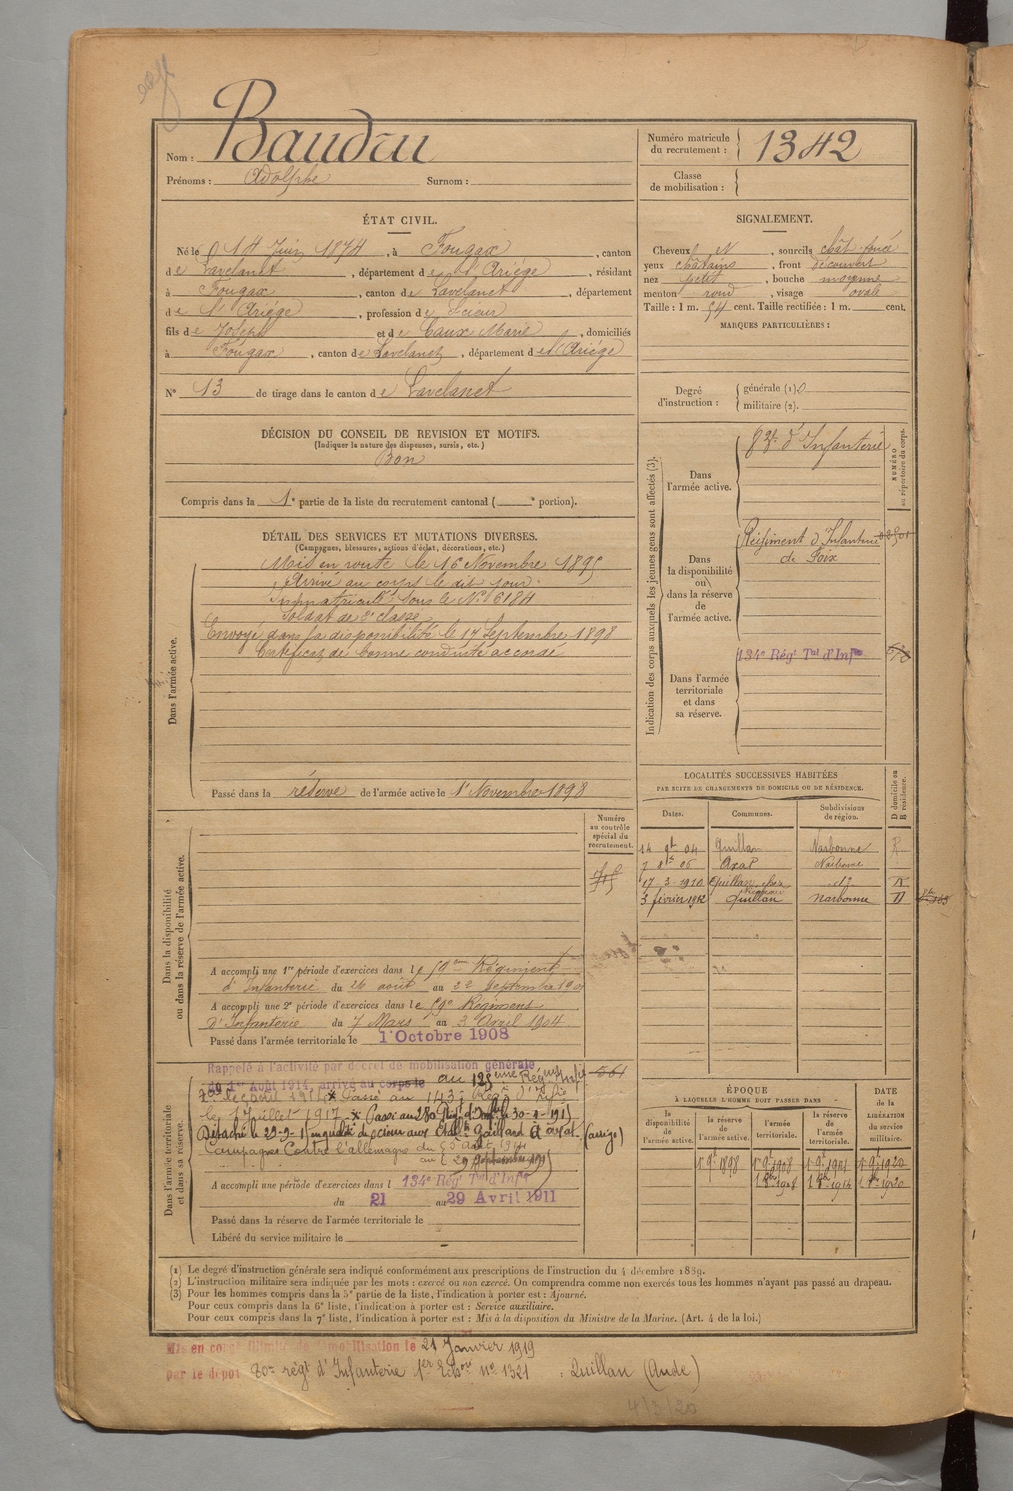 Nom : Baudru
Prénoms : Adolphe Surnom :
Numéro matricule du recrutement : 1342
Classe de mobilisation :
ÉTAT CIVIL.
Né le 14 Juin 1874, à Fougax, canton
de Lavelanet, département de l'Ariège, résidant
à Fougax, canton de Lavelanet, département
de l'Ariège, profession de Scieur
fils de Joseph et de Caux Marie, domiciliés
à Fougax, canton de Lavelanet, département de l'Ariège
N° 13 de tirage dans le canton de Lavelanet
SIGNALEMENT.
Cheveux N, sourcils chât-foncé
yeux châtains, front découvert
nez petit, bouche moyenne
menton rond, visage ovale
Taille : 1 m. 54 cent. Taille rectifiée : 1 m. cent.
MARQUES PARTICULIÈRES :
Degré d'instruction : générale (1) 0
militaire (2).
DÉCISION DU CONSEIL DE REVISION ET MOTIFS.
(Indiquer la nature des dispenses, sursis, etc.)
Bon
Compris dans la 1e partie de la liste du recrutement cantonal ( e portion).
DÉTAIL DES SERVICES ET MUTATIONS DIVERSES.
(Campagnes, blessures, actions d'éclat, décorations, etc.)
Dans l'armée active.
Mis en route le 16 Novembre 1895
Arrivé au corps le dit jour
Immatriculé sous le N° 6184
Soldat de 2e classe
Envoyé dans la disponibilité le 17 Septembre 1898
Certificat de bonne conduite accordé
Passé dans la réserve de l'armée active le 1er Novembre 1898
Indication des corps auxquels les jeunes gens sont affectés (3).
NUMÉRO au répertoire du corps.
Dans l'armée active.
d'Infanterie
Dans la disponibilité ou dans la réserve de l'armée active.
Régiment d'Infanterie
de Foix
Dans l'armée territoriale et dans sa réserve.
134e Régt Tal d'Infie
LOCALITÉS SUCCESSIVES HABITÉES
PAR SUITE DE CHANGEMENTS DE DOMICILE OU DE RÉSIDENCE.
Dates. Communes. Subdivisions de région. D domicile ou R résidence.
14 9bre 04 Quillan Narbonne R
Axat Narbonne
17-3-1910 Quillan dº R
3 février 1912 Quillan Narbonne D
Dans la disponibilité ou dans la réserve de l'armée active.
Numéro au contrôle spécial du recrutement.
A accompli une 1re période d'exercices dans le 59eme Régiment
d'Infanterie du 26 août au 22 Septembre 1901
A accompli une 2e période d'exercices dans le 59e Régiment
d'Infanterie du 7 Mars au 3 Avril 1904
Passé dans l'armée territoriale le 1 Octobre 1908
Dans l'armée territoriale et dans sa réserve.
Rappelé à l'activité par décret de mobilisation générale
du 1er Août 1914, arrivé au corps le
Passé au 143e Régt d'Infie
le 1 Juillet 1917
Campagnes Contre l'allemagne du
A accompli une période d'exercices dans l 134e Régt Tal d'Infie
du 21 au 29 Avril 1911
Passé dans la réserve de l'armée territoriale le
Libéré du service militaire le
ÉPOQUE
A LAQUELLE L'HOMME DOIT PASSER DANS
la disponibilité de l'armée active.
la réserve de l'armée active.
l'armée territoriale.
la réserve de l'armée territoriale.
DATE de la LIBÉRATION du service militaire.
(1) Le degré d'instruction générale sera indiqué conformément aux prescriptions de l'instruction du 4 décembre 1889.
(2) L'instruction militaire sera indiquée par les mots : exercé ou non exercé. On comprendra comme non exercés tous les hommes n'ayant pas passé au drapeau.
(3) Pour les hommes compris dans la 5e partie de la liste, l'indication à porter est : Ajourné.
Pour ceux compris dans la 6e liste, l'indication à porter est : Service auxiliaire.
Pour ceux compris dans la 7e liste, l'indication à porter est : Mis à la disposition du Ministre de la Marine. (Art. 4 de la loi.)
Mis en congé illimité de démobilisation le 21 Janvier 1919
par le dépôt 80me régt d'Infanterie 1er Echon n° 1321 : Quillan (Aude)
4/3/20